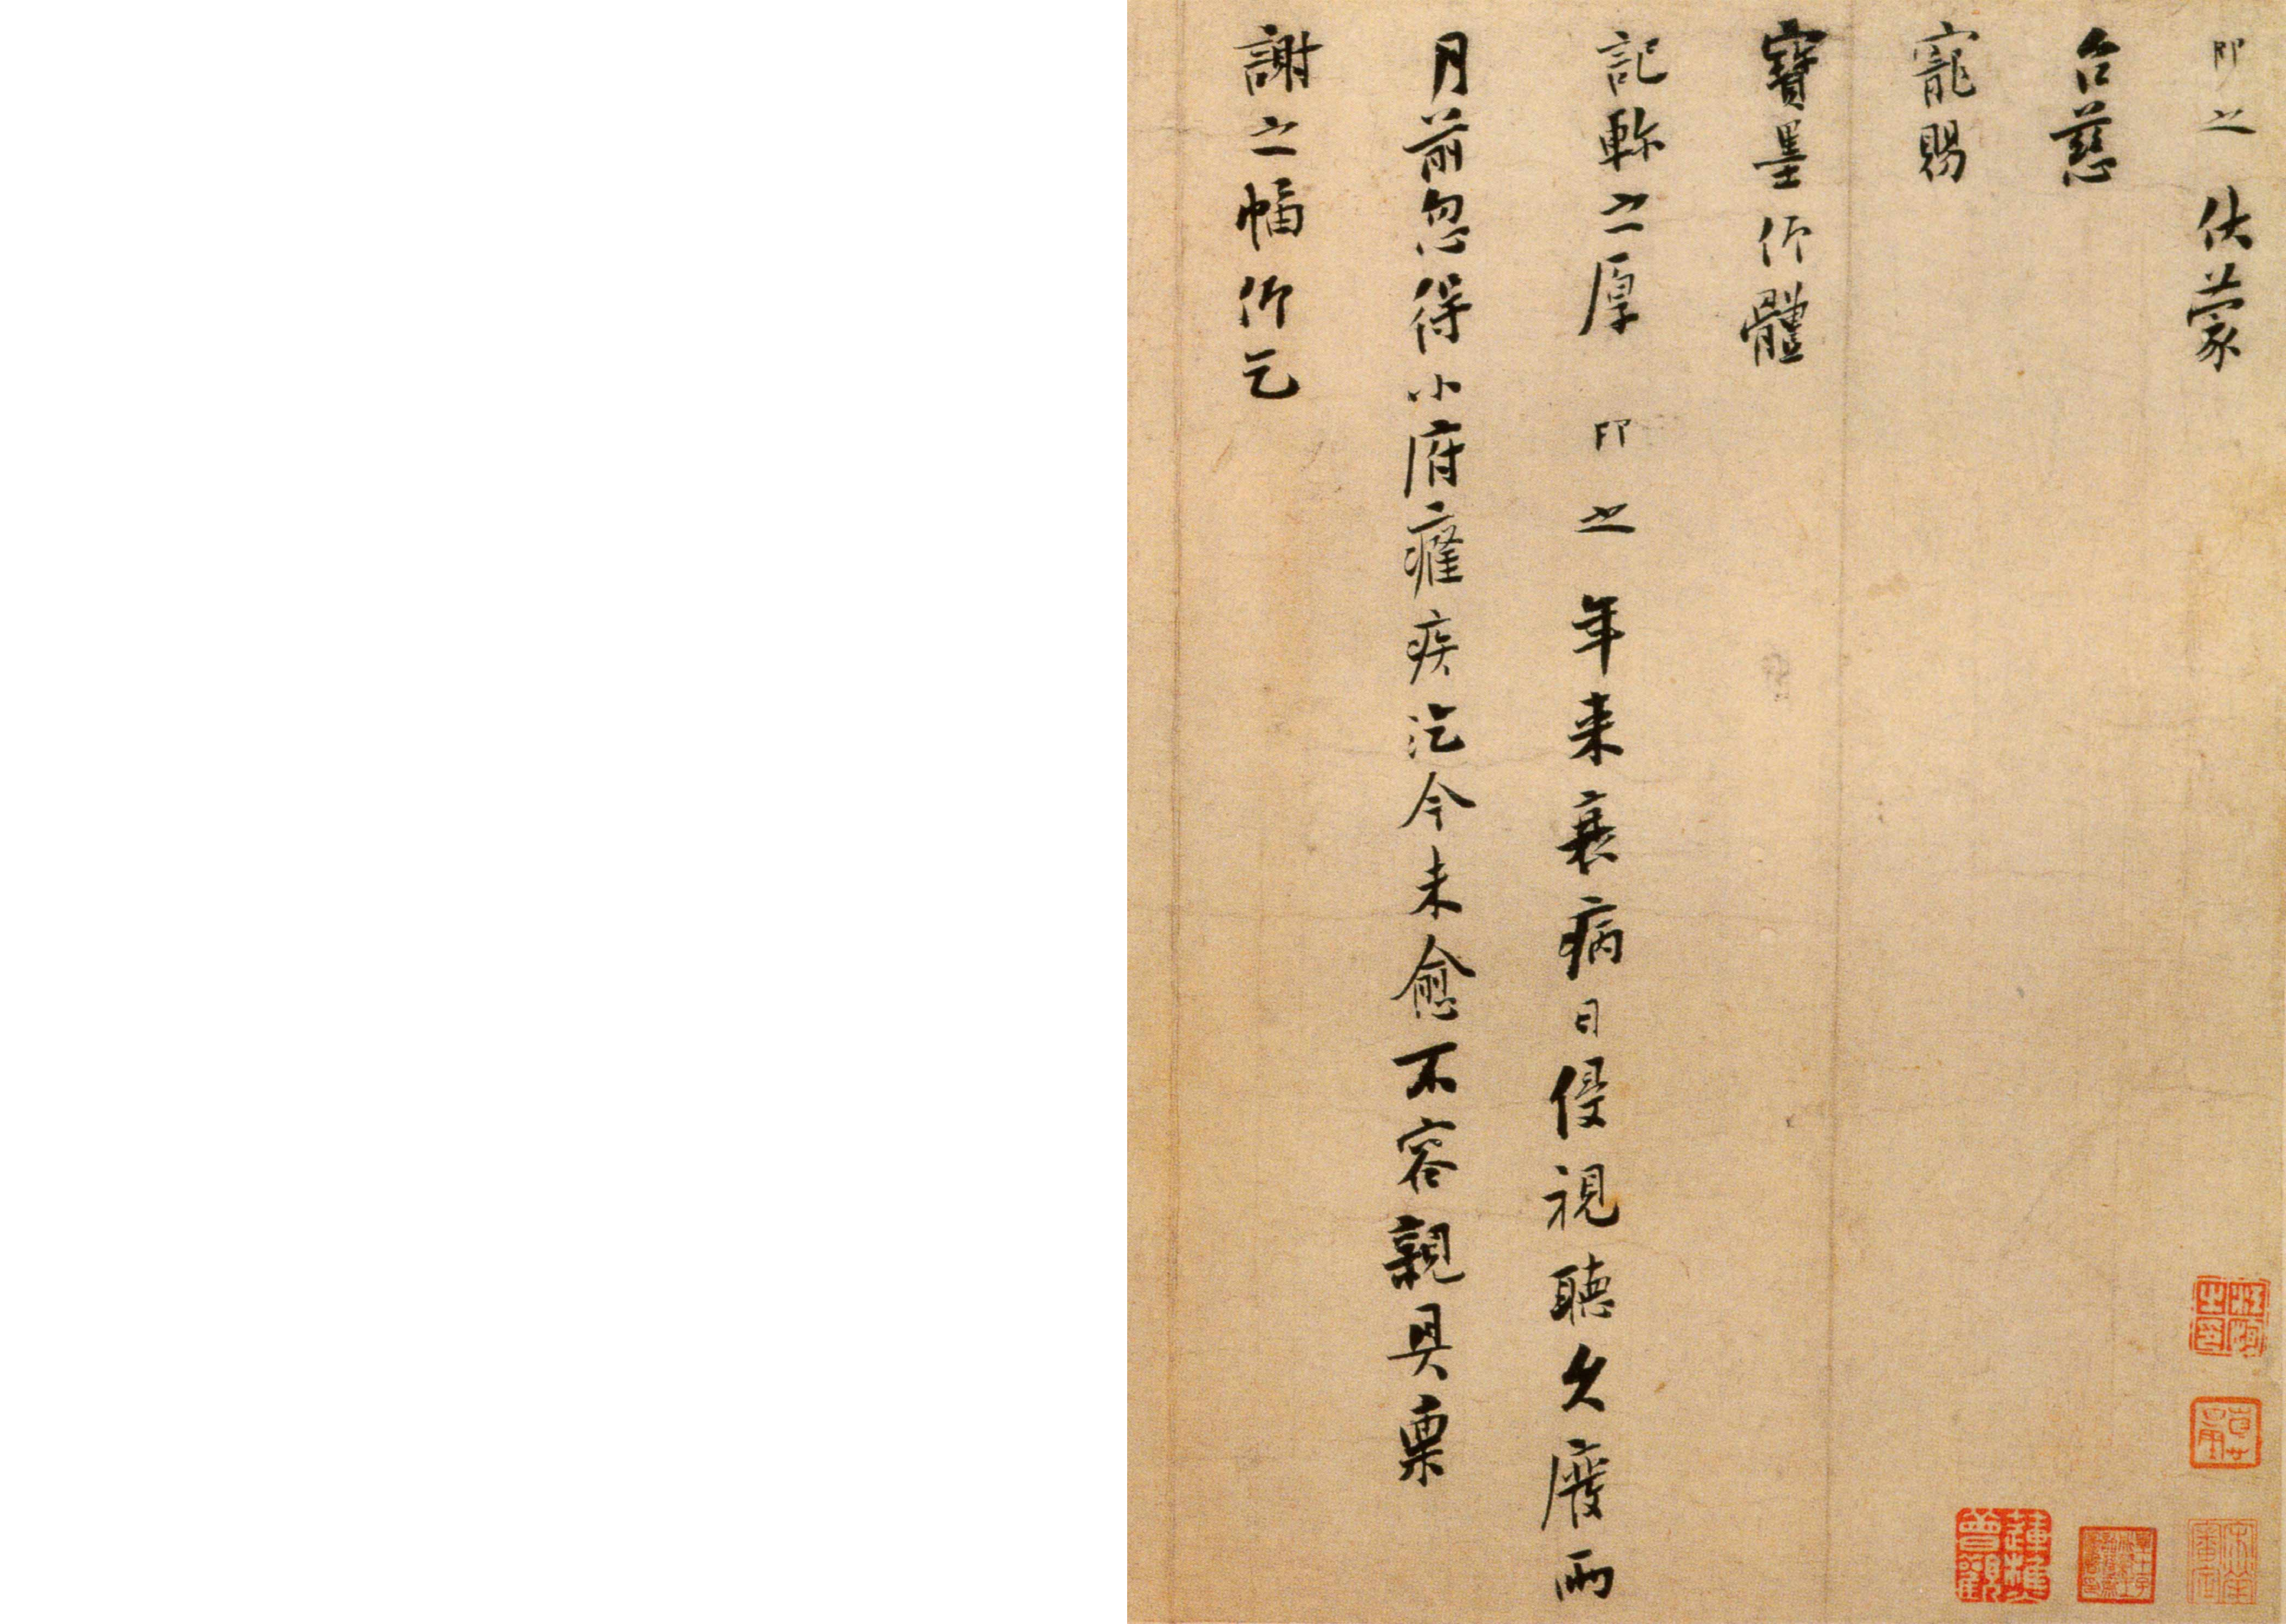 即之伏蒙
台慈
寵賜
寶墨仰體
記軫之厚即之年来衰病日侵視聽久廢兩
月前忽得小府癰疾迄今未愈不容親具稟
謝之幅仰乞
蓮樵曾觀